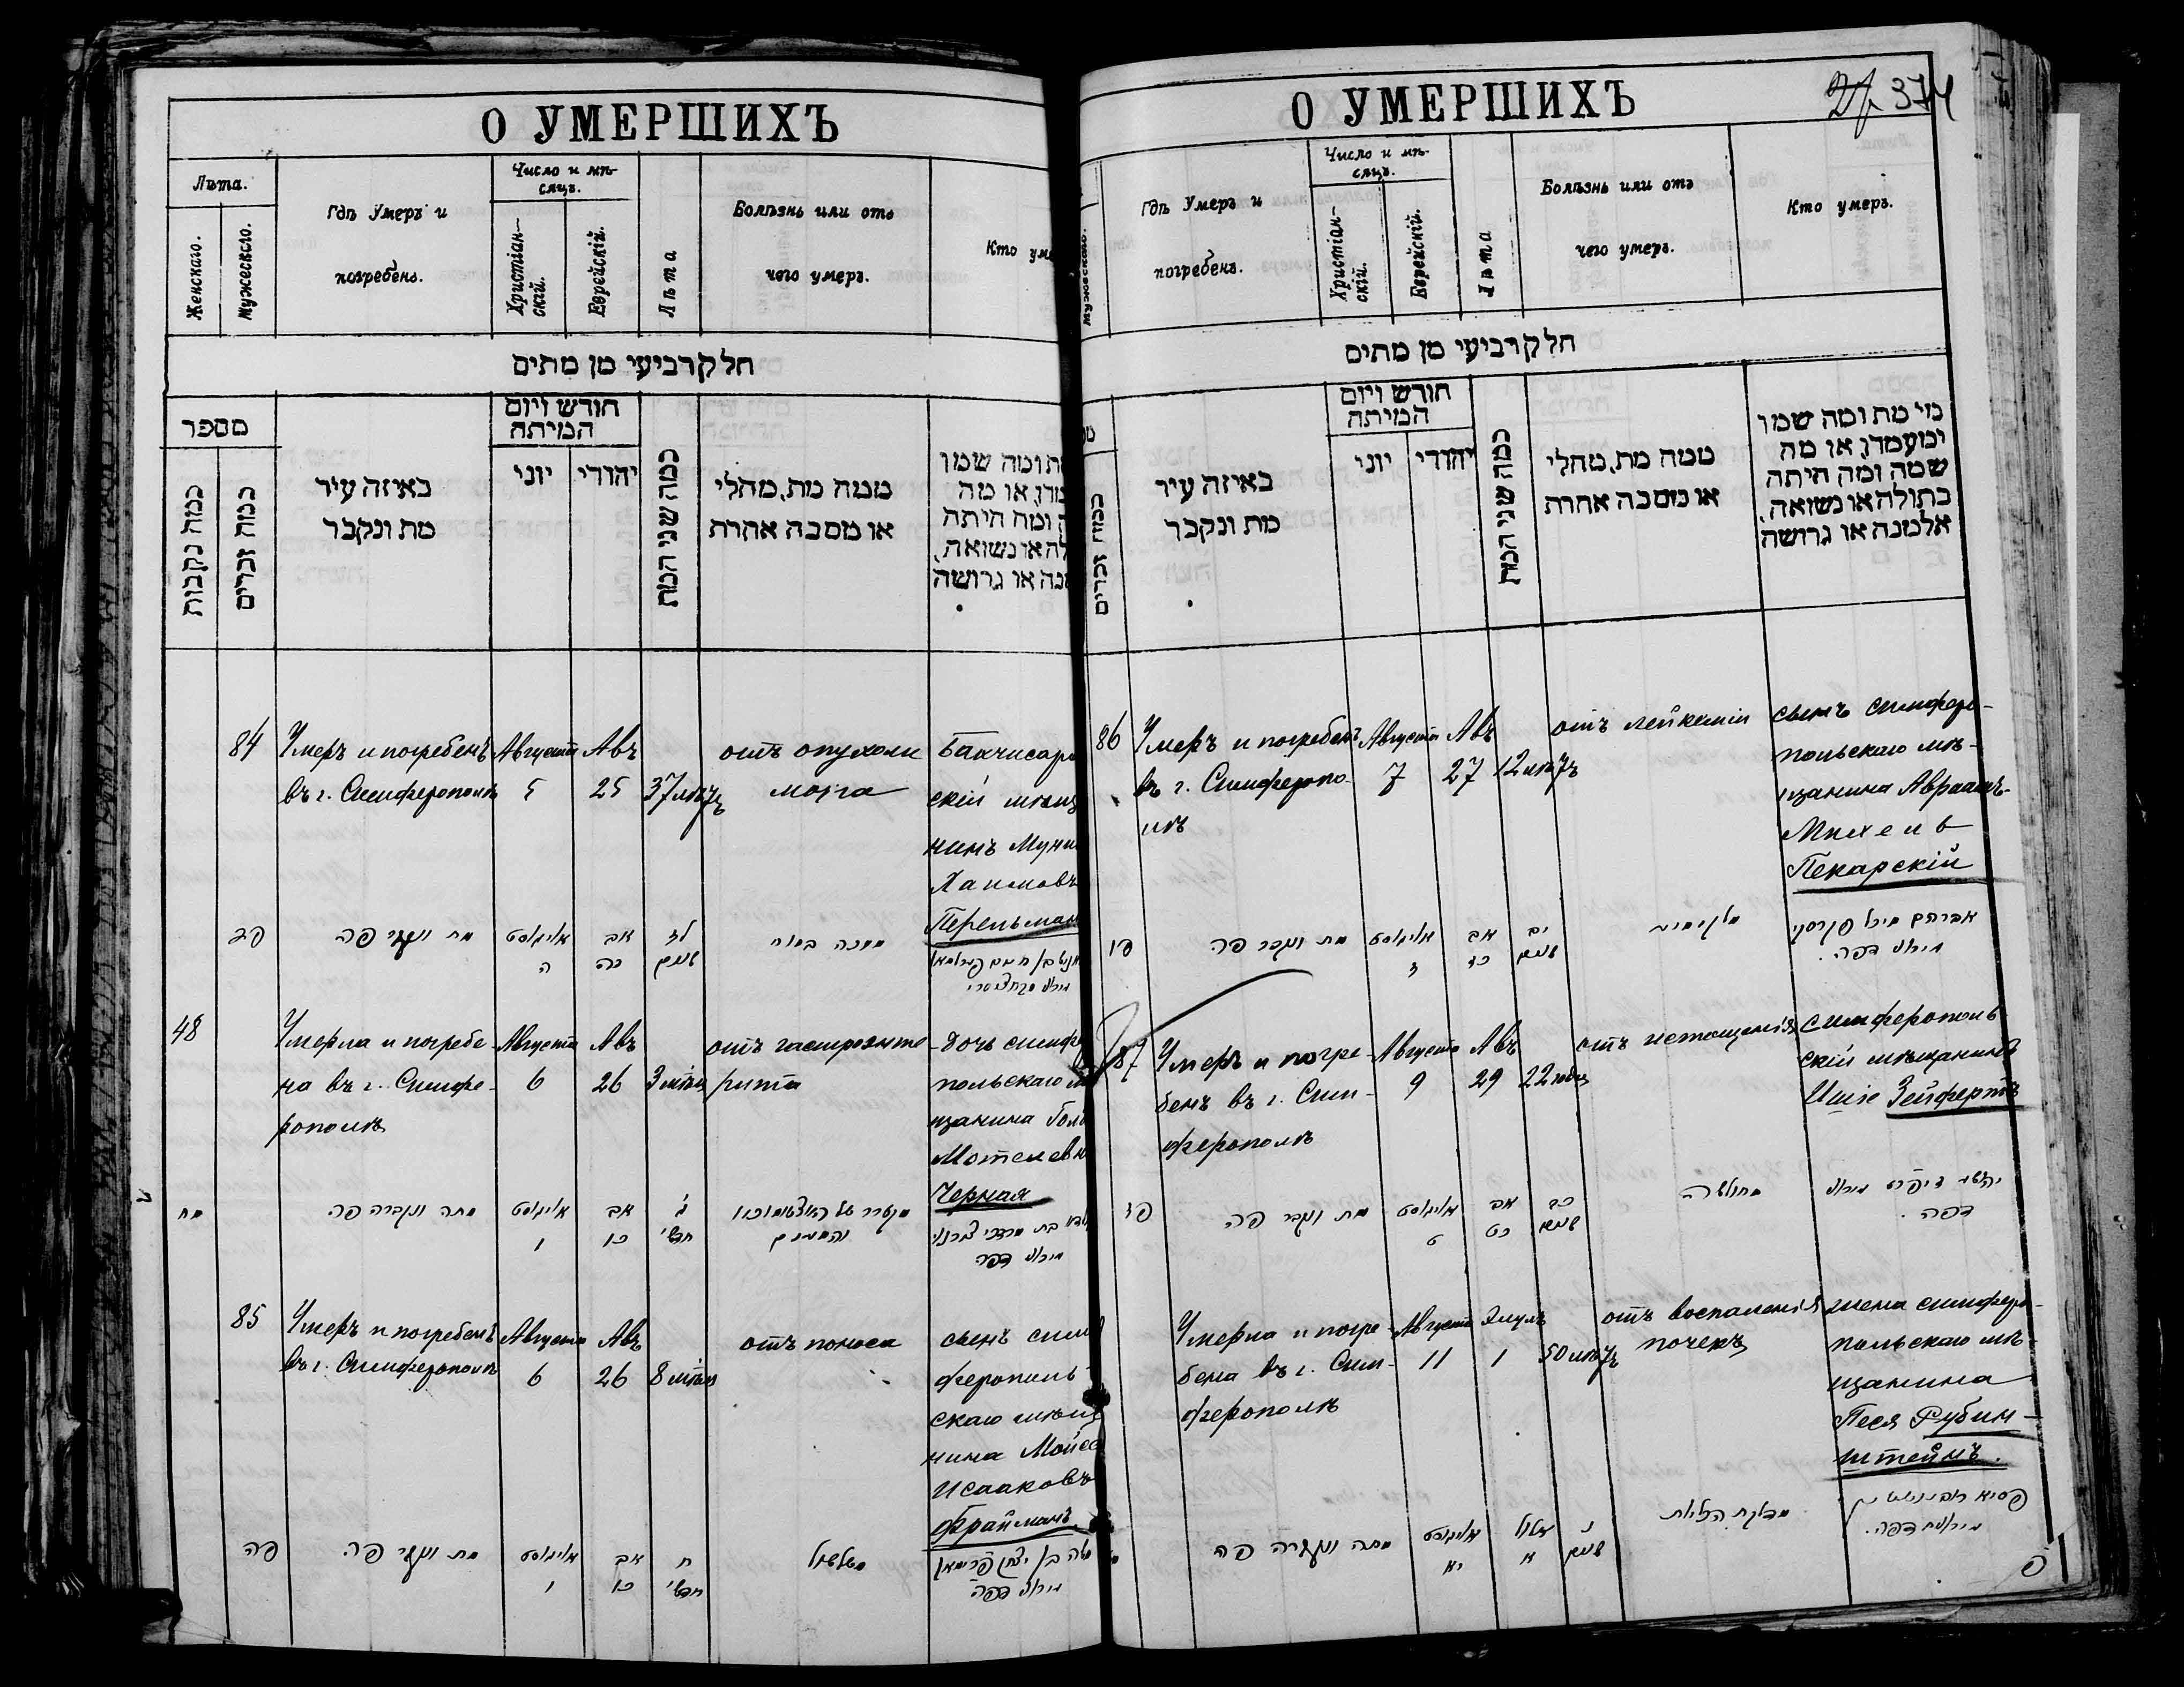 О УМЕРШИХЪ
Лѣта.
Женскаго.
Мужескло.
Гдѣ Умеръ и
погребенъ.
Число и мѣ-
сяцъ.
Христіан-
скій.
Еврейскій.
Лѣта
Болѣзнь или отъ
чего умеръ.
Кто уме
חלק רביעי מן מתים
מספר
כמה נקבות
כמה זכרים
באיזה עיר
מת ונקבר
חודש ויום
המיתה
יוני
יהודי
כמה שני המת
ממה מת, מחלי
או מסבה אחרת
ת ומה שמו
מדו, או מה
ומה היתה
לה או נשואה,
נה או גרושה
84
Умеръ и погребенъ
въ г. Симферополѣ
Августа
5
Авъ
25
37 лѣтъ
отъ опухоли
мозга
Бахчисара
скій мѣщ
нинъ Муни
Хаимовъ
Перельман
פד
מת ונקבר פה
אויגוסט
ה
אב
כה
לז
שנים
48
Умерла и погребе-
на въ г. Симфе-
рополѣ
Августа
6
Авъ
26
3 мѣсяц
отъ гастроэнте
рита
дочь симфе
польскаго м
щанина Голд
Мотелевн
Черная
מח
מתה ונקברה פה
אויגוסט
ו
אב
כו
ג
חדשי
85
Умеръ и погребенъ
въ г. Симферополѣ
Августа
6
Авъ
26
8 мѣсяц
отъ поноса
сынъ сим
ферополь
скаго мѣщ
нина Мойсе
Исааковъ
Фрайманъ
פה
מת ונקבר פה.
אויגוסט
ו
אב
כו
ח
חדשי
משלשול
משה בן יצחק פריימאן
מיראט דפה
О УМЕРШИХЪ
374
Мужескаго.
Гдѣ Умеръ и
погребенъ.
Число и мѣ-
сяцъ.
Христіан-
скій.
Еврейскій.
Лѣта
Болѣзнь или отъ
чего умеръ.
Кто умеръ.
חלק רביעי מן מתים
כמה זכרים
באיזה עיר
מת ונקבר
חודש ויום
המיתה
יוני
יהודי
כמה שני המת
ממה מת, מחלי
או מסבה אחרת
מי מת ומה שמו
ומעמדו, או מה
שמה ומה היתה
בתולה או נשואה,
אלמנה או גרושה
86
Умеръ и погребенъ
въ г. Симферопо-
лѣ
Августа
7
Авъ
27
12 лѣтъ
отъ лейкеміи
сынъ симферо-
польскаго мѣ-
щанина Авраамъ-
Михель
Пекарскій
פו
מת ונקבר פה
אויגוסט
ז
אב
כז
יב
שנים
אברהם מיכל פקרסקי
מיראט דפה.
87
Умеръ и погре-
бенъ въ г. Сим-
ферополѣ
Августа
9
Авъ
29
22 года
отъ истощенія
симферополь
скій мѣщанинъ
Ишіе Зейфертъ
פז
מת ונקבר פה
אויגוסט
ט
אב
כט
כב
שנים
מחולשה
דפה.
Умерла и погре-
бена въ г. Сим-
ферополѣ
Августа
11
Элулъ
1
50 лѣтъ
отъ воспаленія
почекъ
жена симферо-
польскаго мѣ-
щанина
Песя Рубин-
штейнъ.
מתה ונקברה פה
אויגוסט
יא
אלול
א
נ
שנים
מדלקת הכליות
פסיא רובינשטיין
מיראט דפה.